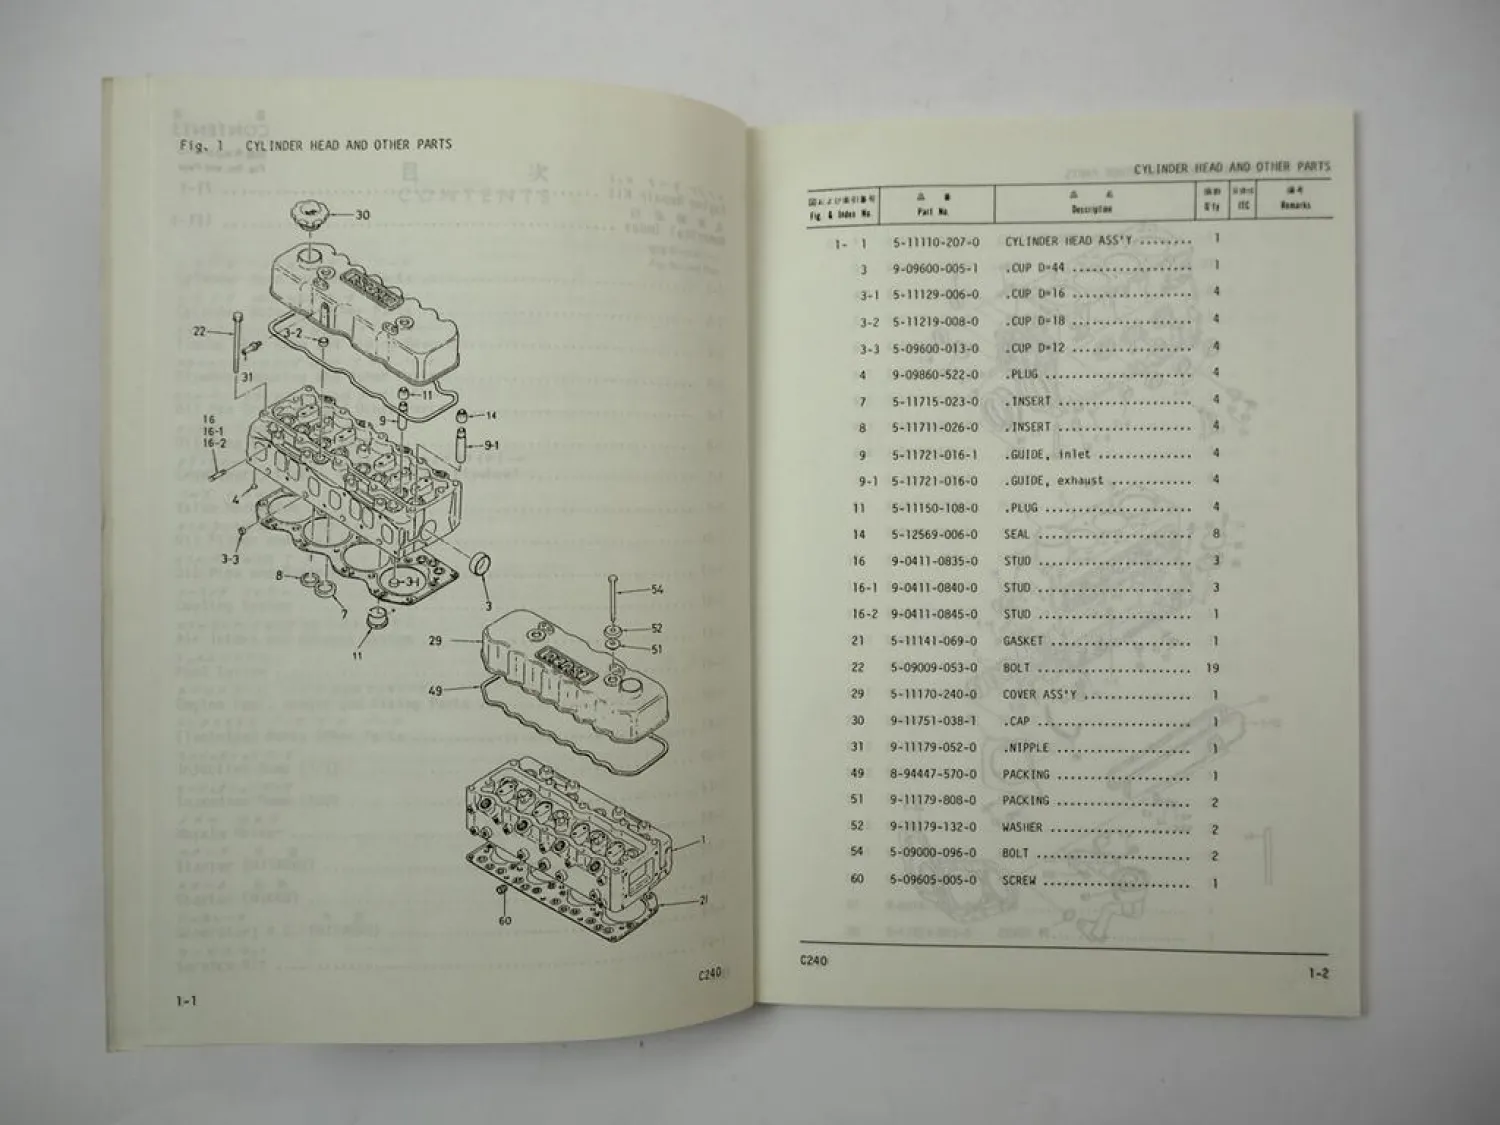 Fig. 1 CYLINDER HEAD AND OTHER PARTS
30
22
3-2
31
11
14
9
9-1
16
16-1
16-2
4
3-3
8
3-1
7
3
11
54
52
29
51
49
1
21
60
C240
1-1
CYLINDER HEAD AND OTHER PARTS
Fig. & Index No. Part No. Description Q'ty ITC Remarks
1- 1 5-11110-207-0 CYLINDER HEAD ASS'Y ........ 1
3 9-09600-005-1 .CUP D=44 .................. 1
3-1 5-11129-006-0 .CUP D=16 .................. 4
3-2 5-11219-008-0 .CUP D=18 .................. 4
3-3 5-09600-013-0 .CUP D=12 .................. 4
4 9-09860-522-0 .PLUG ...................... 4
7 5-11715-023-0 .INSERT .................... 4
8 5-11711-026-0 .INSERT .................... 4
9 5-11721-016-1 .GUIDE, inlet .............. 4
9-1 5-11721-016-0 .GUIDE, exhaust ............ 4
11 5-11150-108-0 .PLUG ...................... 4
14 5-12569-006-0 SEAL ....................... 8
16 9-0411-0835-0 STUD ....................... 3
16-1 9-0411-0840-0 STUD ....................... 3
16-2 9-0411-0845-0 STUD ....................... 1
21 5-11141-069-0 GASKET ..................... 1
22 5-09009-053-0 BOLT ....................... 19
29 5-11170-240-0 COVER ASS'Y ................ 1
30 9-11751-038-1 .CAP ....................... 1
31 9-11179-052-0 .NIPPLE .................... 1
49 8-94447-570-0 PACKING .................... 1
51 9-11179-808-0 PACKING .................... 2
52 9-11179-132-0 WASHER ..................... 2
54 5-09000-096-0 BOLT ....................... 2
60 5-09605-005-0 SCREW ...................... 1
C240
1-2